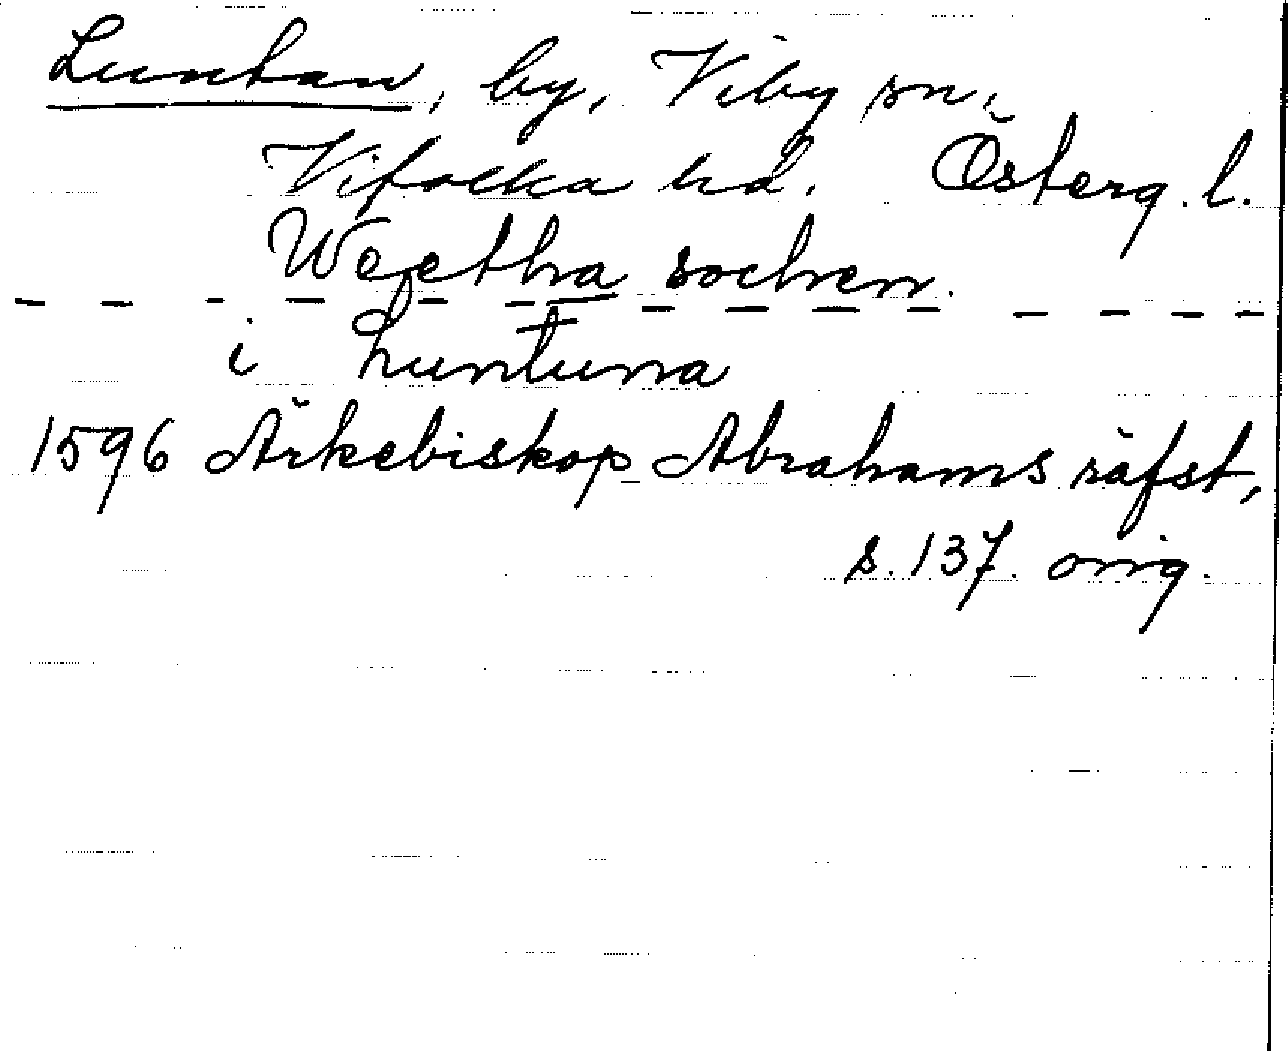 Luntan, by, Viby sn,
Vifolka hd. Österg. l.
Weetha sochen.
i Luntuna
1596 Ärkebiskop Abrahams räfst,
s. 137. orig.